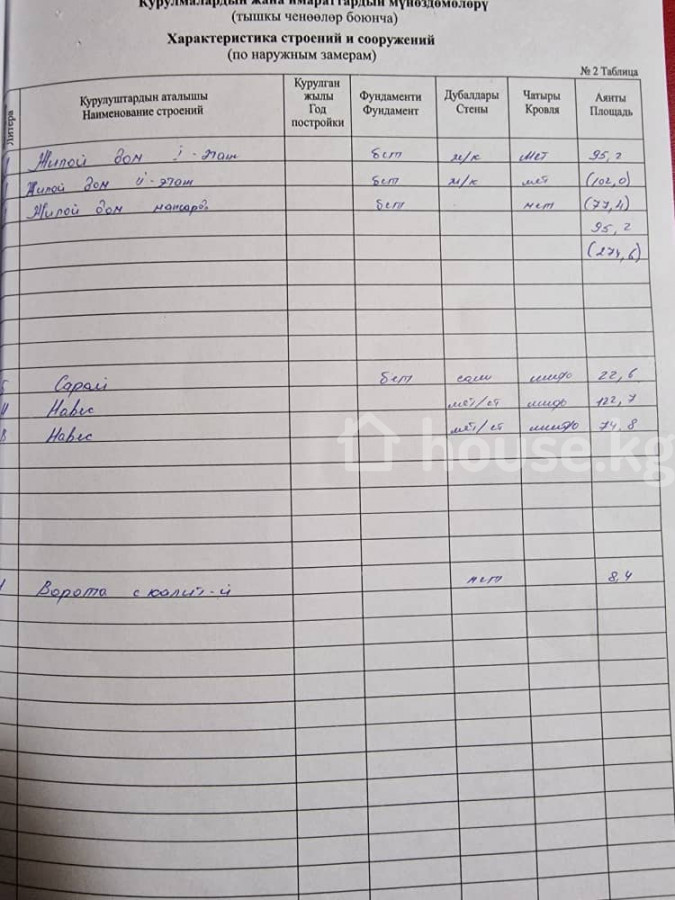 Курулмалардын жана имараттардын мүнөздөмөлөрү
(тышкы ченөөлөр боюнча)
Характеристика строений и сооружений
(по наружным замерам)
№ 2 Таблица
Литера
Курулуштардын аталышы
Наименование строений
Курулган жылы
Год постройки
Фундаменти
Фундамент
Дубалдары
Стены
Чатыры
Кровля
Аянты
Площадь
Жилой дом I-этаж бет м/к мет 95,2
Жилой дом II-этаж бет м/к мет (102,0)
Жилой дом мансард. бет мет (77,4)
95,2
(274,6)
Сарай бет сам шифр 22,6
Навес мет/ст шифр 122,7
Навес мет/ст шифр 74,8
house.kg
Ворота с калит-й мет 8,4